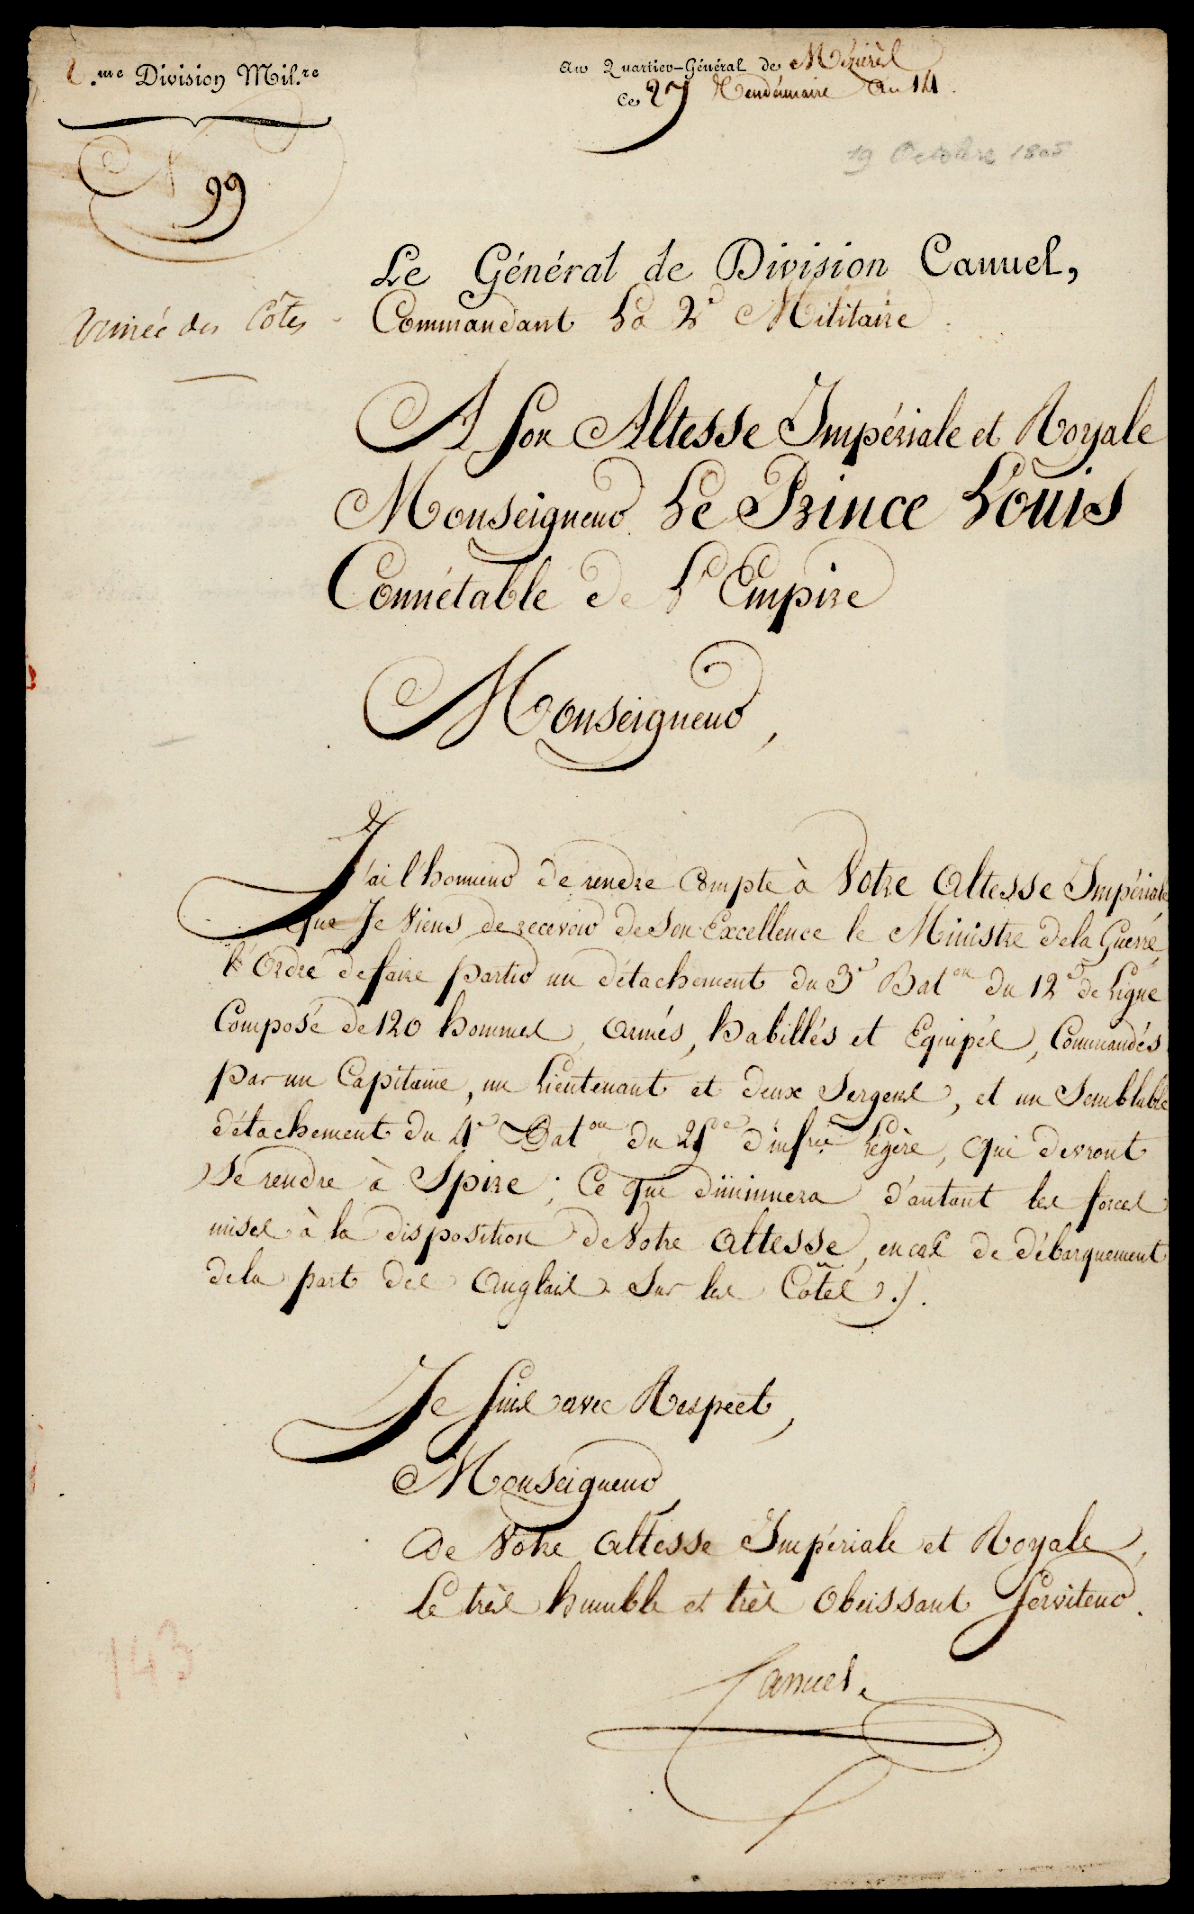 2.me Division Mil.re
Au Quartier-Général de Mézières
Ce 27 Vendémiaire An 14.
19 Octobre 1805
N° 99
Le Général de Division Canuel,
Armée des Côtes
Commandant La 2e Militaire
A Son Altesse Impériale et Royale
Monseigneur Le Prince Louis
Connétable de L'Empire
Monseigneur,
J'ai l'honneur de rendre Compte à Votre Altesse Impériale
que Je Viens de recevoir de Son Excellence le Ministre de la Guerre,
l'Ordre de faire partir un détachement du 3e Baton du 12e de Ligne
Composé de 120 hommes, Armés, habillés et Equipés, Commandés
par un Capitaine, un Lieutenant et deux Sergens, et un Semblable
détachement du 4e Baton du 25e d'infrie Légère, qui devront
Se rendre à Spire; Ce que diminuera d'autant les forces
mises à la disposition de Votre Altesse, en cas de débarquement
de la part des Anglais Sur les Côtes ./.
Je Suis avec Respect,
Monseigneur,
De Votre Altesse Impériale et Royale,
Le très humble et très Obeissant Serviteur.
Canuel.
143